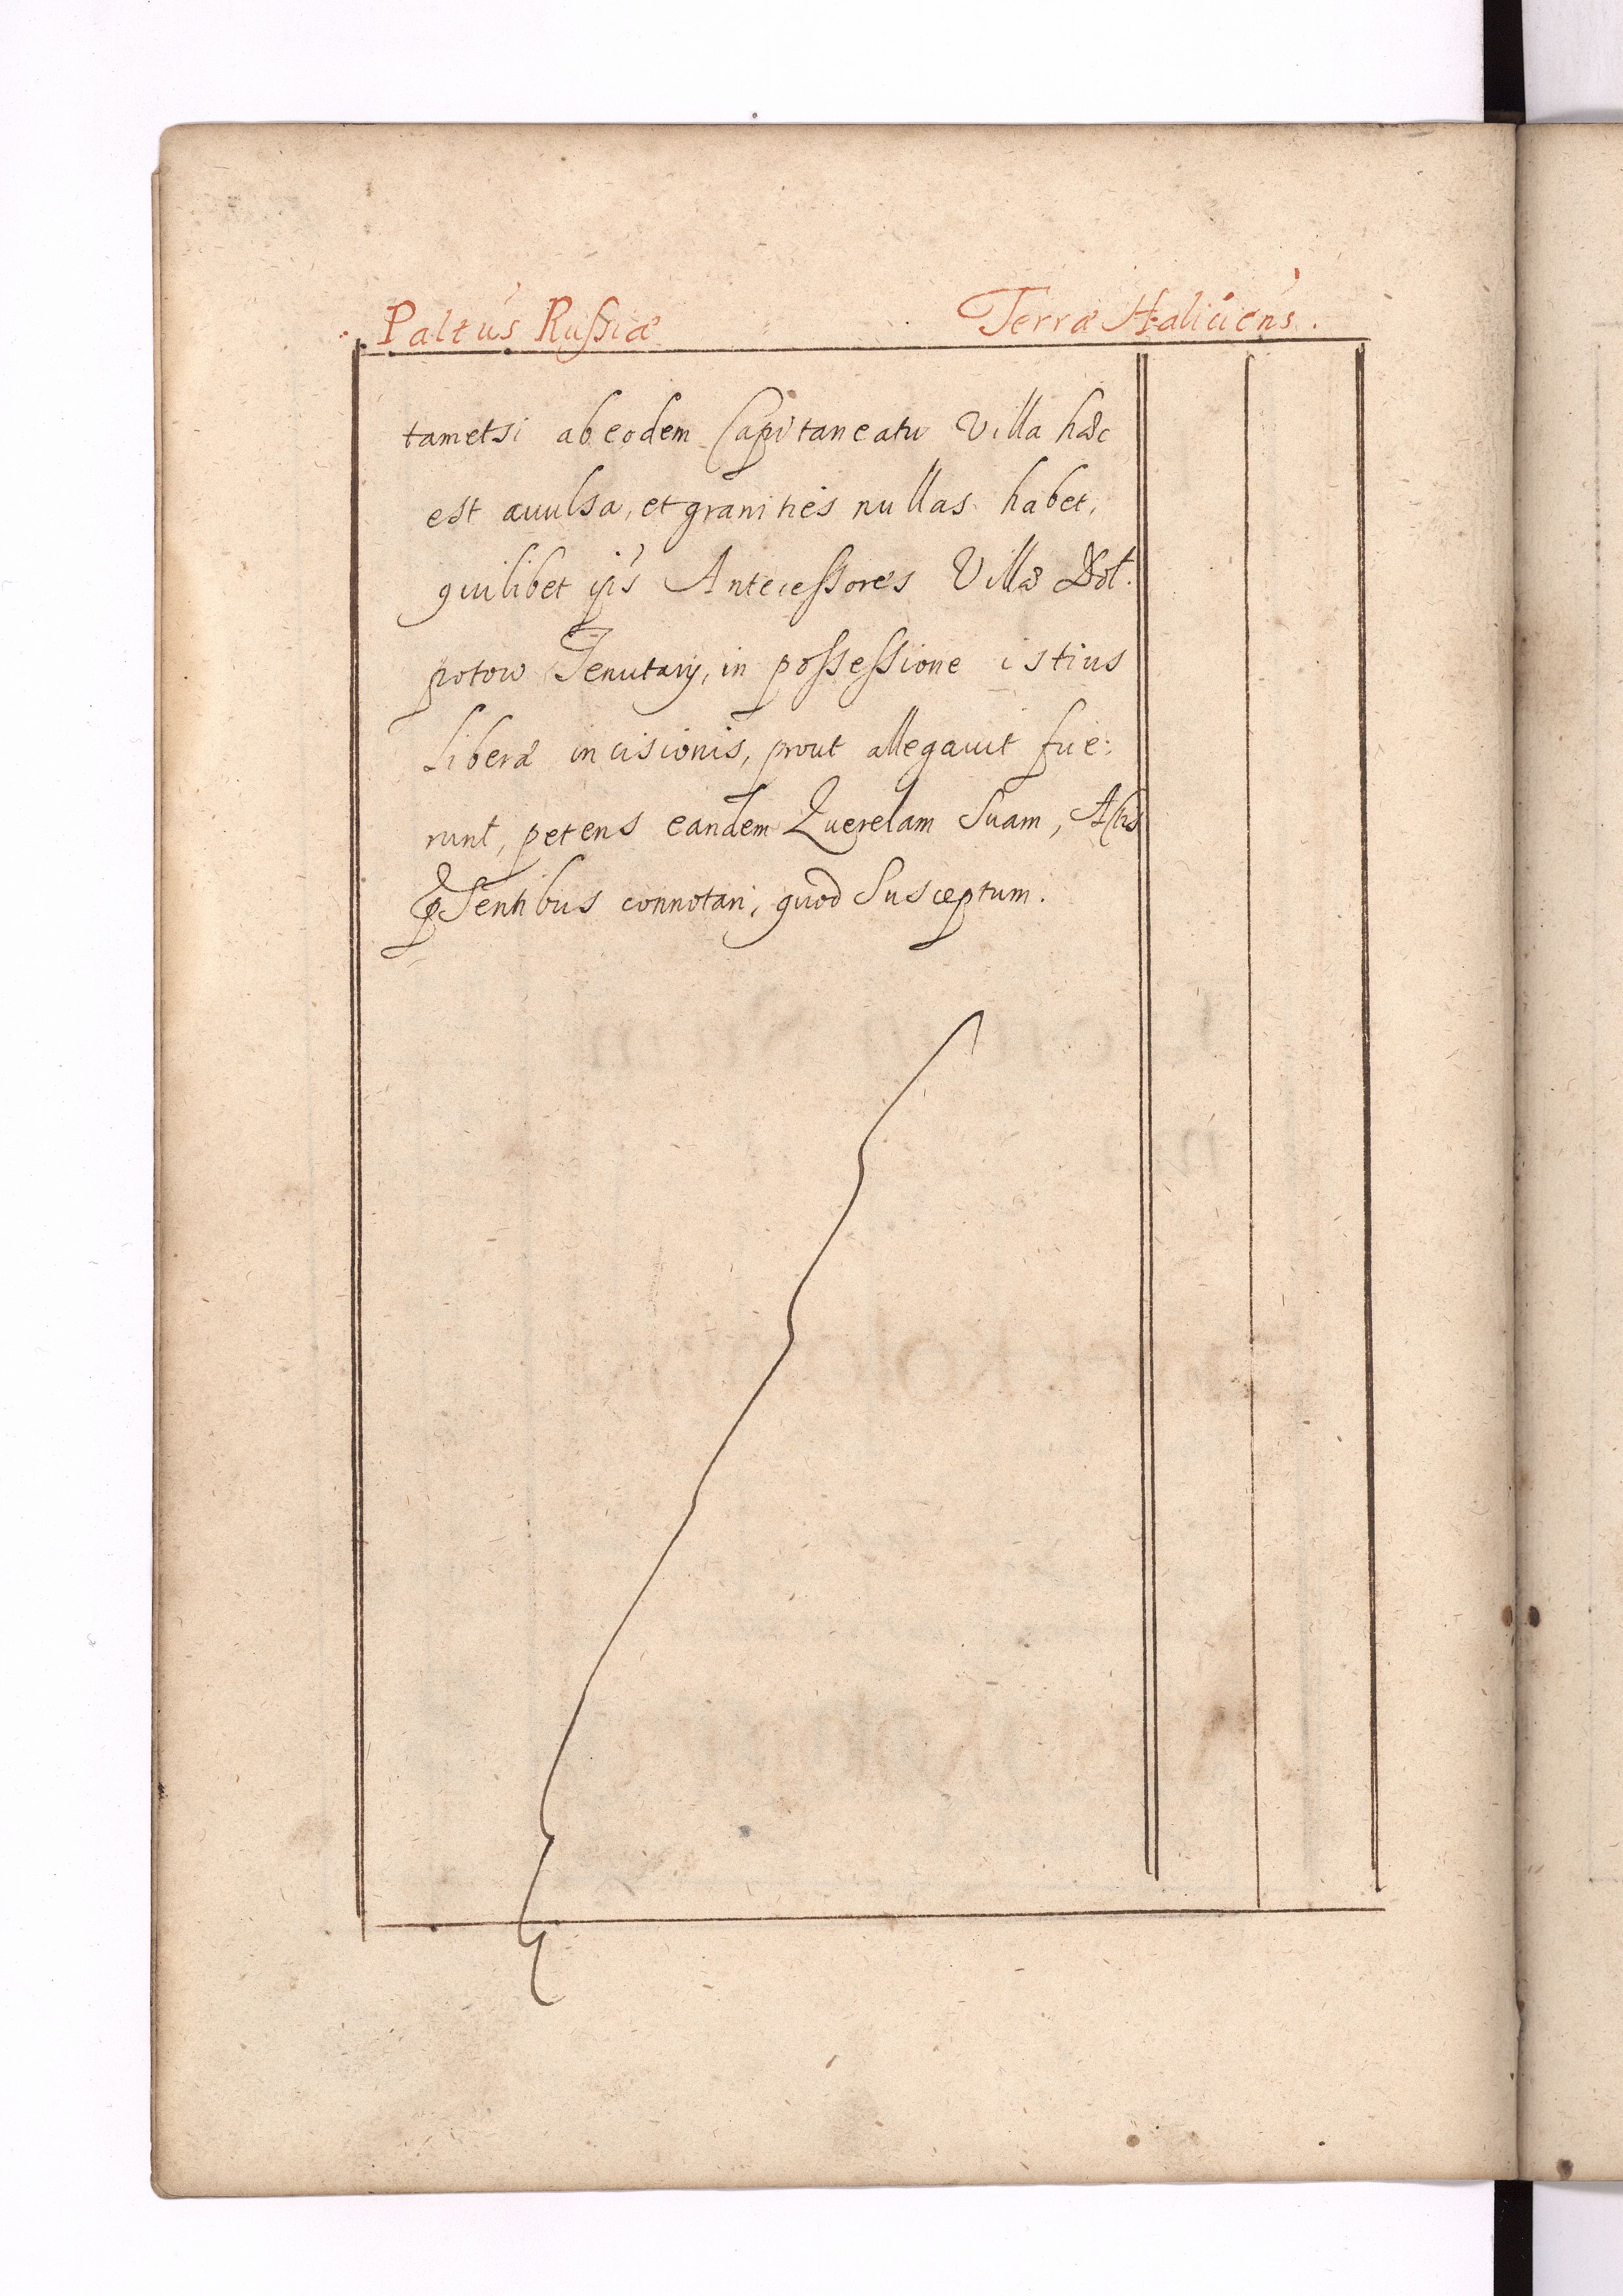 Paltus Russiæ Terræ Haliciens.
tametsi ab eodem Capitaneatu Villa hæc
est auulsa, et granities nullas habet,
quilibet ips Antecessores Villæ
potow Tenutarÿ, in possessione istius
Liberæ incisionis, prout allegauit fue:
runt, petens eandem Querelam Suam, Actis
pSentibus connotari, quod Susceptum.